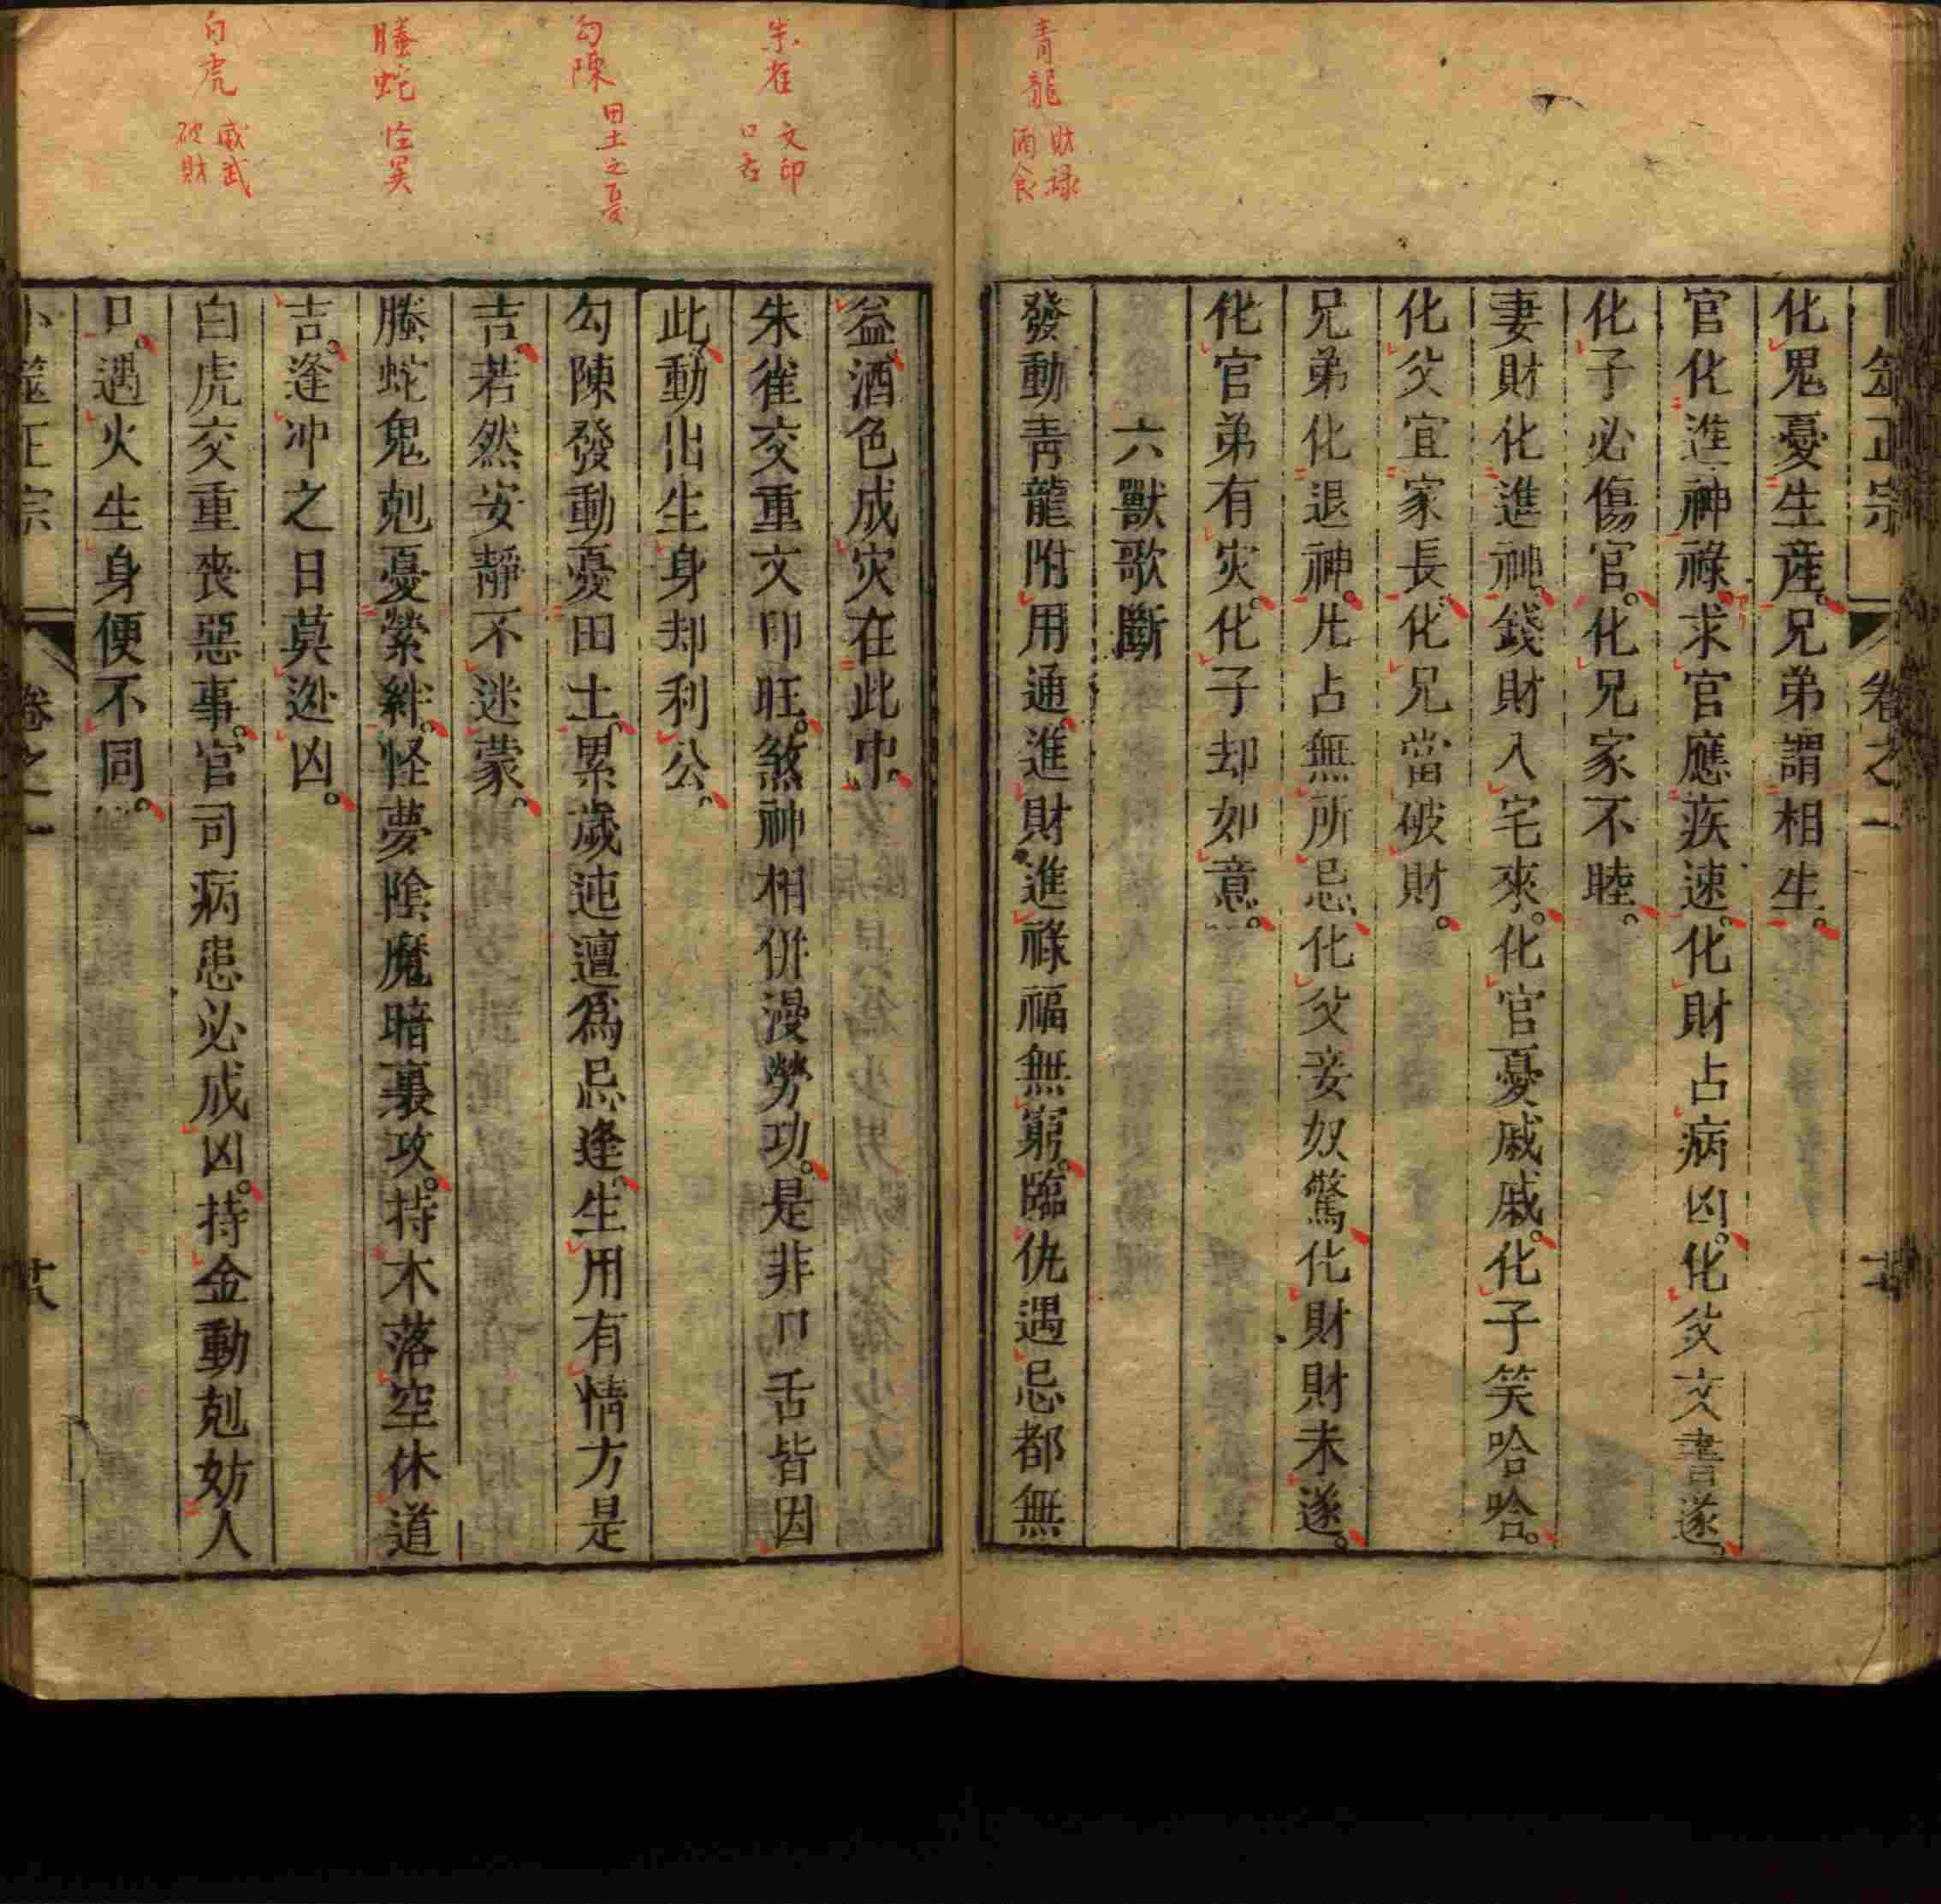 卜筮正宗 卷之一
化鬼憂生產。兄弟謂相生。
官化進神祿。求官應疾速。化財占病凶。化父文書遂。
化子必傷官。化兄家不睦。
妻財化進神。錢財入宅來。化官憂戚戚。化子笑哈哈。
化父宜家長。化兄當破財。
兄弟化退神。凡占無所忌。化父妾奴驚。化財財未遂。
化官弟有灾。化子却如意。
六獸歌斷
發動青龍附用通。進財進祿福無窮。臨仇遇忌都無
益。酒色成灾在此中。
朱雀交重文印旺。煞神相併漫勞功。是非口舌皆因
此。動出生身却利公。
勾陳發動憂田土。累歲迍邅爲忌逢。生用有情方是
吉。若然安靜不迷蒙。
螣蛇鬼剋憂縈絆。怪夢陰魔暗裏攻。持木落空休道
吉。逢冲之日莫迯凶。
白虎交重喪惡事。官司病患必成凶。持金動剋妨人
口。遇火生身便不同。
卜筮正宗 卷之一
青龍 財祿 酒食
朱雀 文印 口舌
勾陳 田土之憂
螣蛇 怪異
白虎 威武 破財